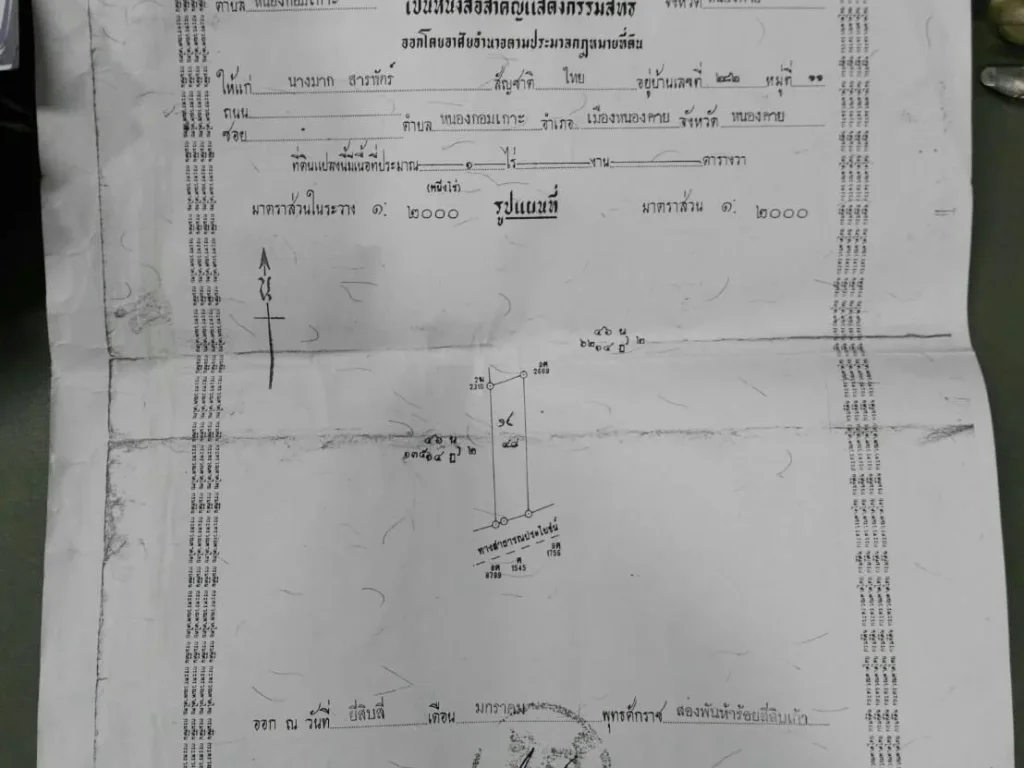 ตำบล หนองกอมเกาะ จังหวัด หนองคาย
เป็นหนังสือสำคัญแสดงกรรมสิทธิ์
ออกโดยอาศัยอำนาจตามประมวลกฎหมายที่ดิน
ให้แก่ นางมาก สารพัคร์ สัญชาติ ไทย อยู่บ้านเลขที่ ๒๘๒ หมู่ที่ ๑๑
ถนน
ซอย ตำบล หนองกอมเกาะ อำเภอ เมืองหนองคาย จังหวัด หนองคาย
ที่ดินแปลงนี้มีเนื้อที่ประมาณ ๑ ไร่ งาน ตารางวา
(หนึ่งไร่)
มาตราส่วนในระวาง ๑: ๒๐๐๐ รูปแผนที่ มาตราส่วน ๑: ๒๐๐๐
น
๔๖ น
๖๒ ๑๔ อ ๒
2669
2215
๑๘
๔๘
๔๖ น
๑๓๕ ๑๔ อ ๒
ทางสาธารณประโยชน์
8799 1545 1756
ออก ณ วันที่ ยี่สิบสี่ เดือน มกราคม พุทธศักราช สองพันห้าร้อยสี่สิบเก้า